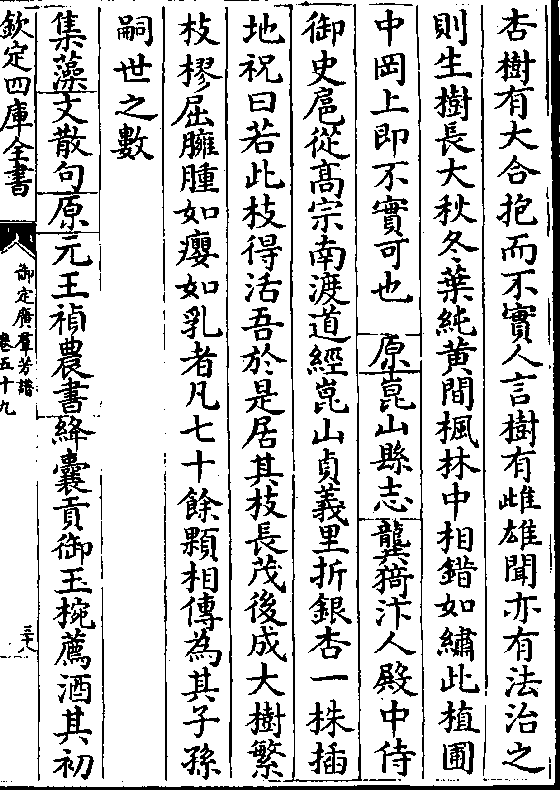 杏樹有大合抱而不實人言樹有雌雄聞亦有法治之
則生樹長大秋冬葉純黄間楓林中相錯如繡此植圃
中岡上即不實可也 原崑山縣志龔猗汴人殿中侍
御史扈從髙宗南渡道經崑山貞義里折銀杏一株插
地祝曰若此枝得活吾於是居其枝長茂後成大樹繁
枝樛屈臃腫如癭如乳者凡七十餘顆相傳為其子孫
嗣世之數
集藻文散句原元王禎農書絳囊貢御玉椀薦酒其初
欽定四庫全書
御定廣羣芳譜
卷五十九
三十八